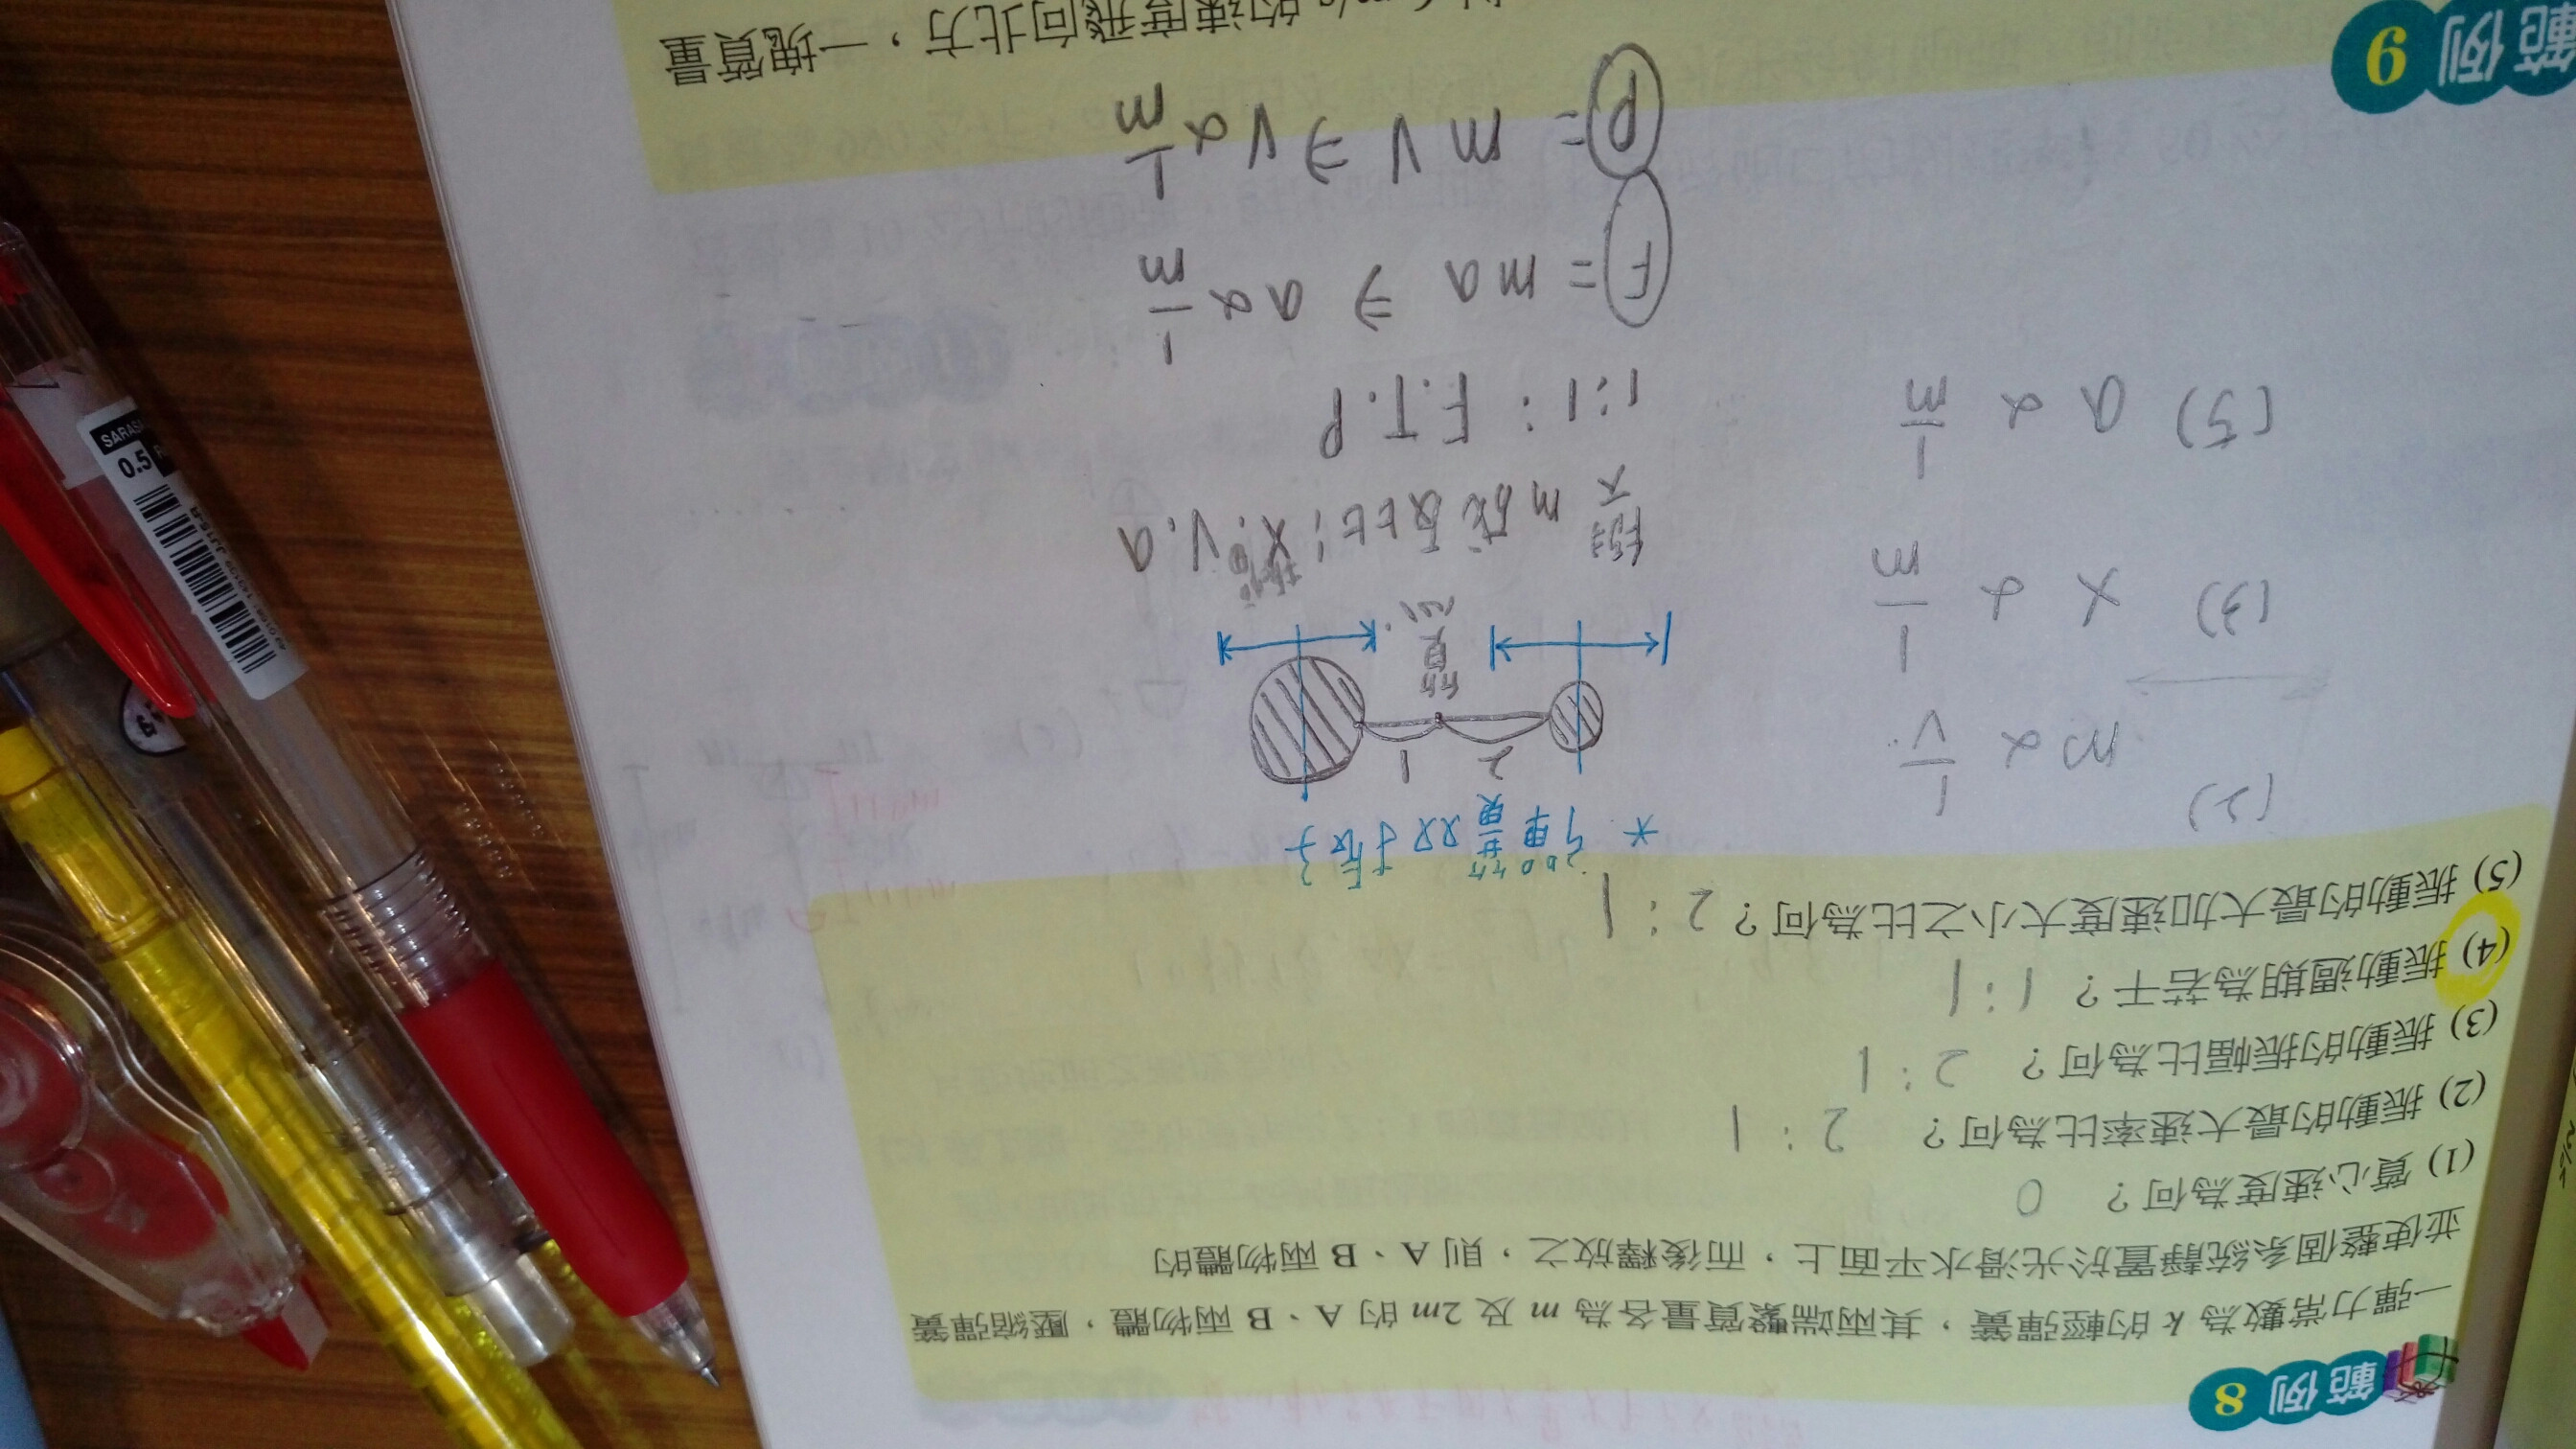 範例 8
一彈力常數為 k 的輕彈簧，其兩端繫質量各為 m 及 2m 的 A、B 兩物體，壓縮彈簧
並使整個系統靜置於光滑水平面上，而後釋放之，則 A、B 兩物體的
(1) 質心速度為何？ 0
(2) 振動的最大速率比為何？ 2：1
(3) 振動的振幅比為何？ 2：1
(4) 振動週期為若干？ 1：1
(5) 振動的最大加速度大小之比為何？ 2：1
* 彈簧双振子
(2)
m α 1/v
2 1
質心
(3) x α 1/m
m 成反比：X.V.a
振幅
1:1：F.T.P
(5) a α 1/m
F = ma ⇒ a α 1/m
P = mv ⇒ v α 1/m
範例 9
m/s 的速度飛向北方，一塊質量
SARASA
0.5